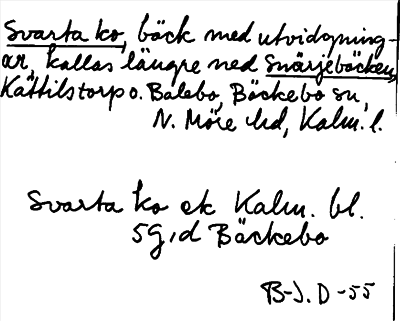 Svarta ko, bäck med utvidgning-
ar, kallas längre ned Snärjebäcken,
Kättilstorp o. Balebo, Bäckebo sn,
N. Möre hd, Kalm. l.
Svarta ko ek Kalm. bl.
5G,d Bäckebo
B-J. D -55